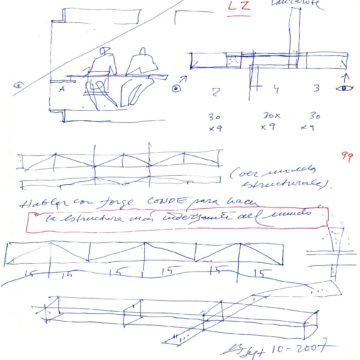 LZ
Lanzarote
A
2 4 3
30 30x 30
x9 x9 x9
99
(ver modelos
estructurales).
Hablar con Jorge CONDE para hacer
"la estructura más interesante del mundo"
15 15 15 15 15
Sept 10-2007